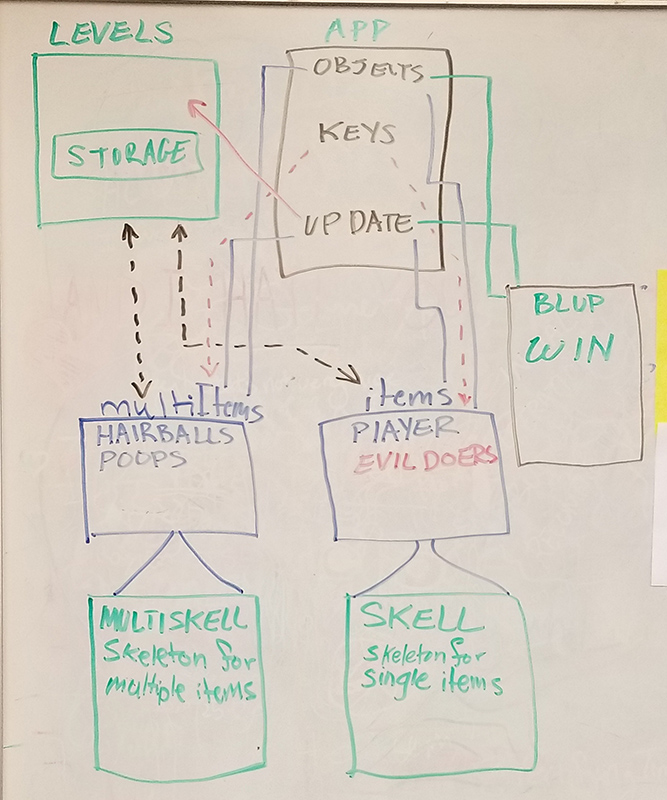 LEVELS
STORAGE
APP
OBJECTS
KEYS
UPDATE
BLUP
WIN
multiItems
HAIRBALLS
POOPS
items
PLAYER
EVIL DOERS
MULTISKELL
Skeleton for
multiple items
SKELL
Skeleton for
single items